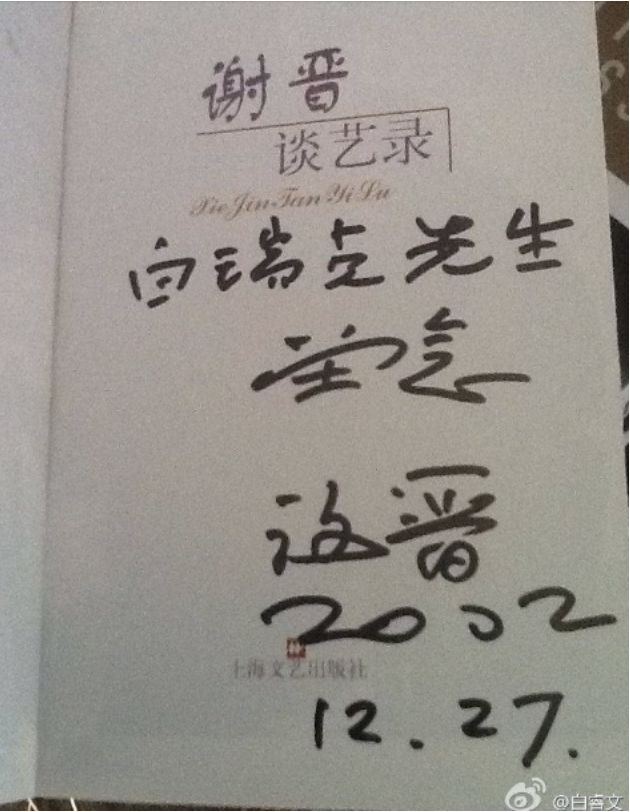 谢晋
谈艺录
Xie Jin Tan Yi Lu
白瑞 先生
念
谢晋
2002
上海文艺出版社
12.27.
@白睿文